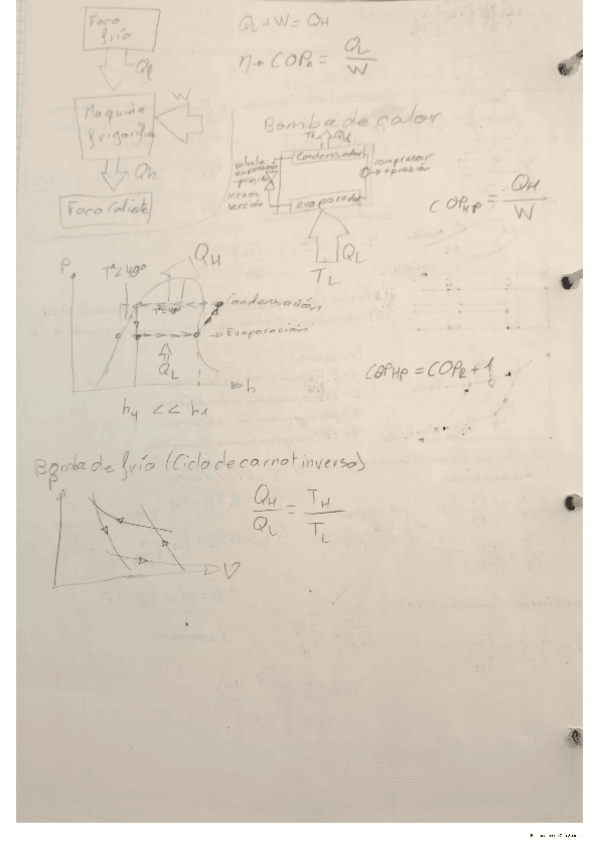 Foco
frío
QL
W
Maquina
frigorífica
Qh
Foco Caliente
QL + W = QH
η → COPR = QL / W
Bomba de calor
QH
Condensador
valvula
expansión
- presión
menos
sección
compresor
+ presión
evaporador
QL
TL
COPHP = QH / W
P
QH
Condensación
Evaporación
QL
h
h4 << h1
COPHP = COPR + 1
Bomba de frío (Ciclo de carnot inverso)
P
V
QH / QL = TH / TL